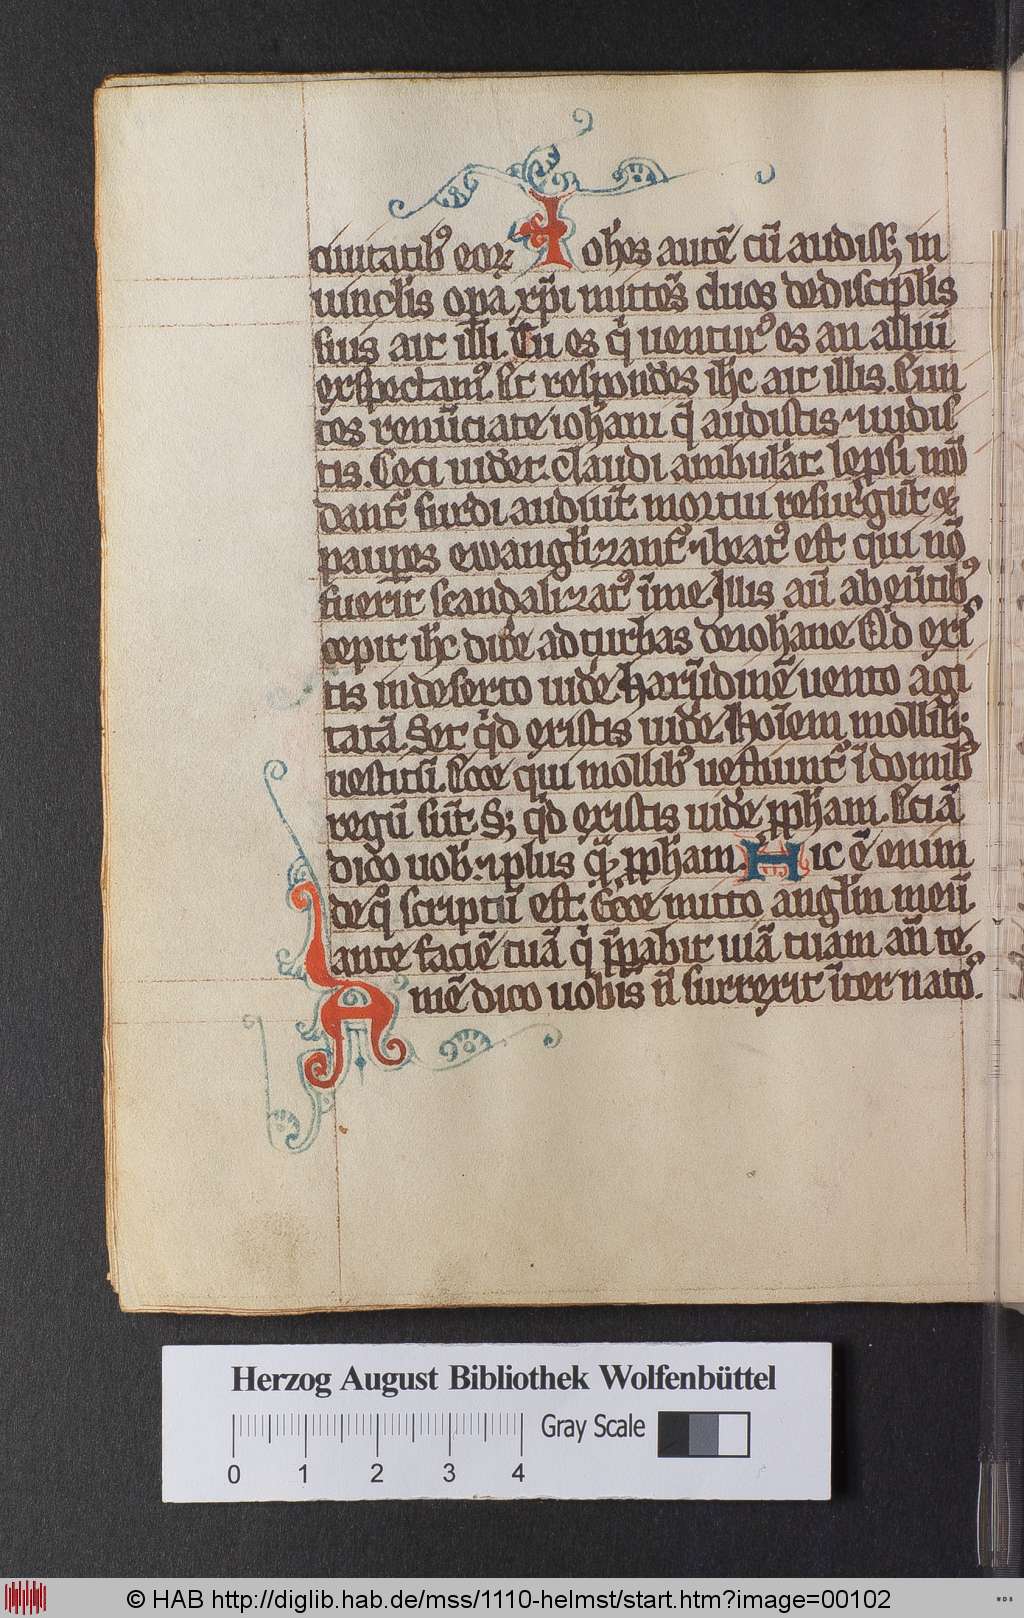 ciuitatibꝰ eoꝝ Iohēs autē cū audiss; in
uinclis opa xp̄i mittēs duos de discipl̄is
suis ait illi. Tu es q̇ uenturꝰ es an aliū
exspectamꝰ. Et respondēs ih̄c ait illis. Eun
tes renūciate iohani q̄ audistis ⁊ uidis
tis. Ceci uidēt. claudi ambulāt. lepsi mū
dant᷑ surdi audiūt. mortui resurgūt ⁊
paupes ewangliꝫant᷑ ⁊ beatꝰ est qui nō
fuerit scandaliꝫatꝰ ī me. Illis aū abeūtibꝰ
cepit ih̄c dicē ad turbas de iohane. Qd exi
tis in deserto uidē. harūdinē uento agi
tatā. Set q̇d existis uidē. Hoīem mollibꝫ
uestitū. Ecce qui mollibꝰ uestiunt᷑ ī domibꝰ
regū sūt. Sꝫ q̇d existis uidē ꝓpham. Eciā
dico uob̄ ⁊ plus q̄ ꝓpham. Hic ē enim
de q̊ scriptū est. Ecce mitto anglm meū
ante faciē tuā q̇ p̄pabit uiā tuam an̄ te.
Amē dico uobis n̄ surrexit īter natoꝰ.
Herzog August Bibliothek Wolfenbüttel
Gray Scale
0 1 2 3 4
© HAB http://diglib.hab.de/mss/1110-helmst/start.htm?image=00102